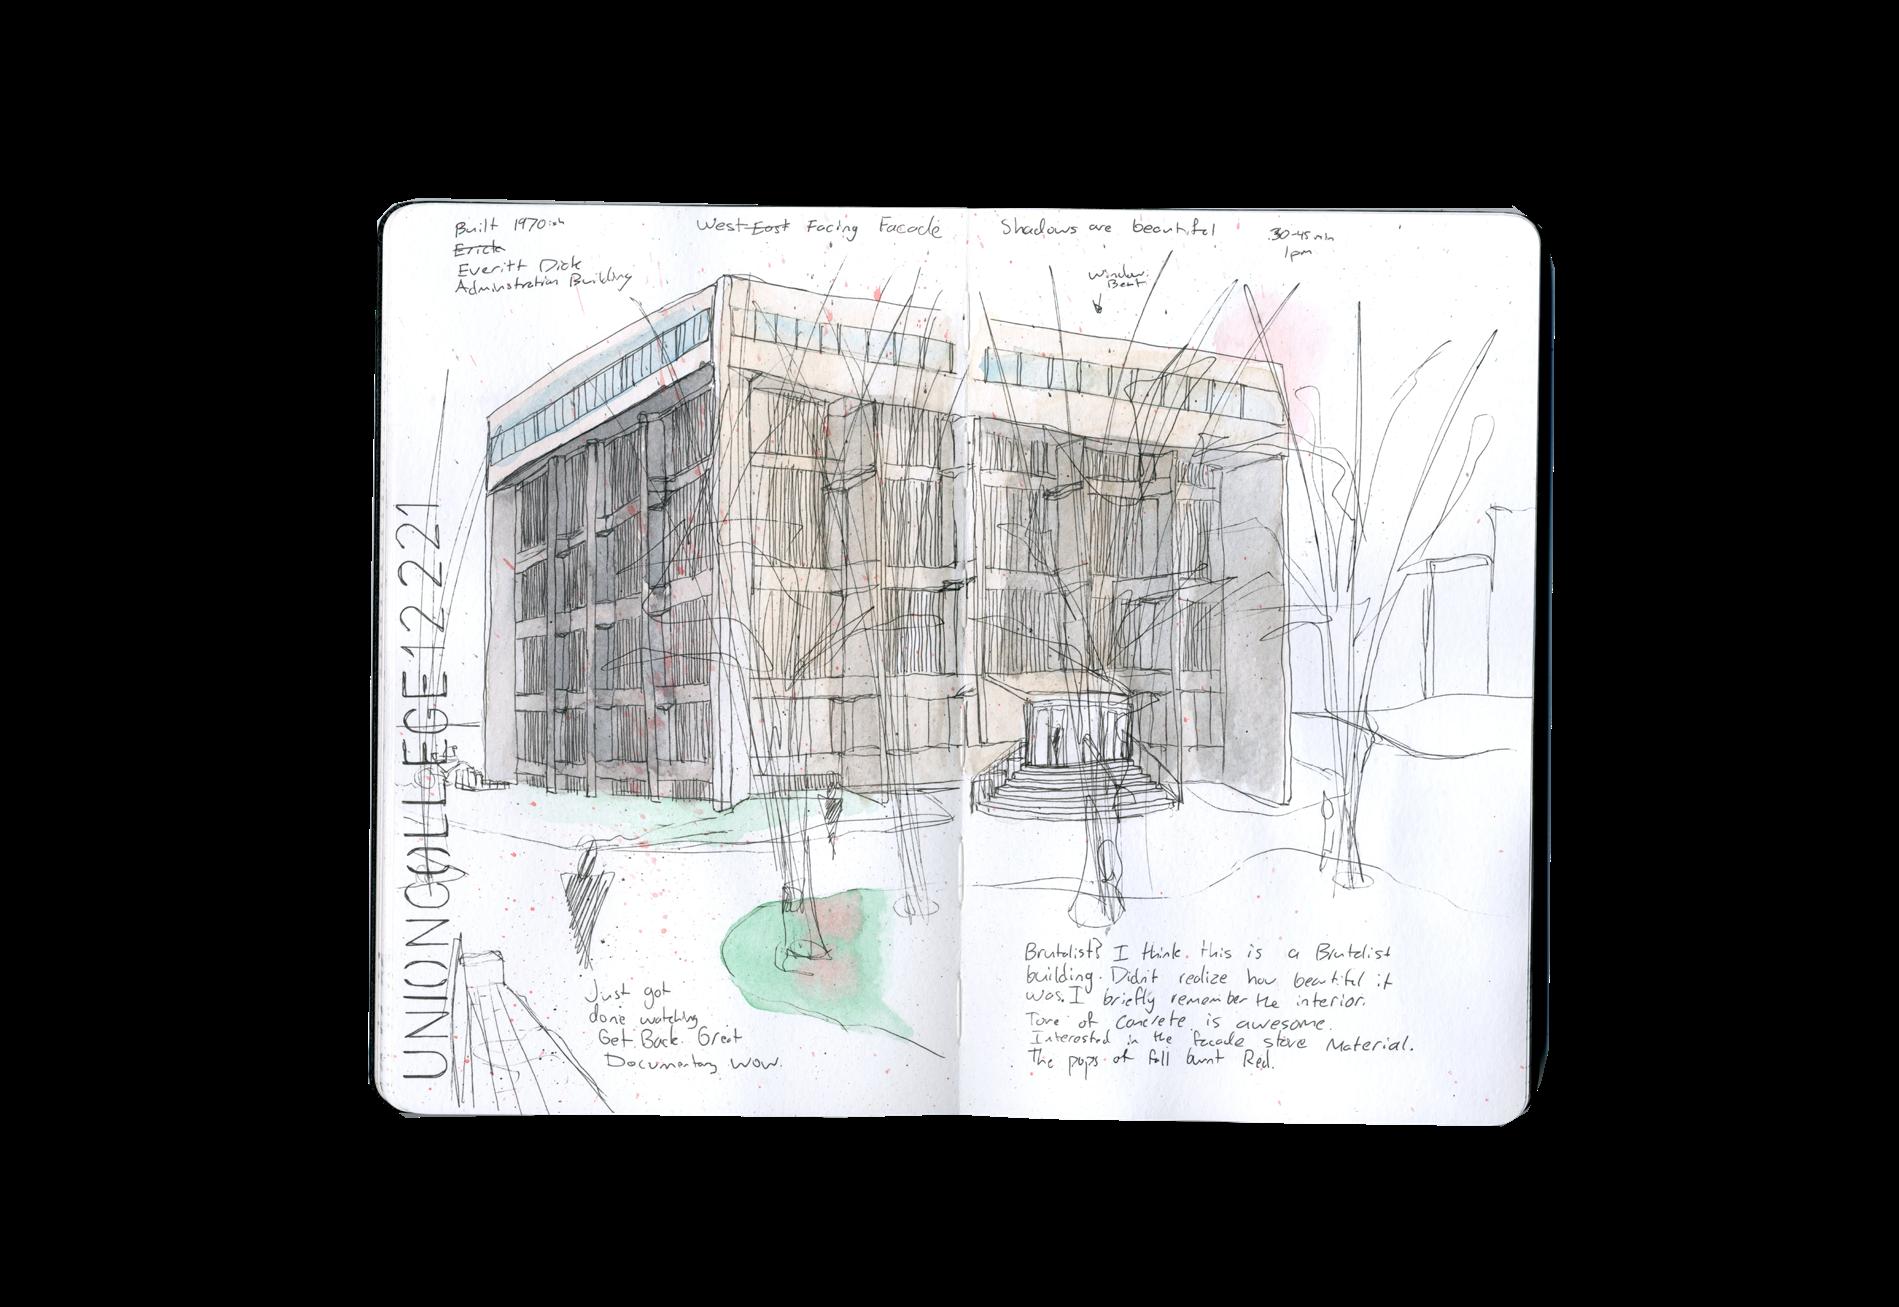 Built 1970ish
Erick
Everitt Dick
Adminstration Building
West East Facing Facade
Shadows are beautiful
30-45 min
1pm
window
Bent
UNIONCOLLEGE 12 2 21
Just got
done watching
Get Back. Great
Documentary wow.
Brutalist? I think this is a Brutalist
building. Didn't realize how beautiful it
was. I briefly remember the interior.
Tone of concrete is awesome.
Interested in the facade stone Material.
The pops of fall burnt Red.